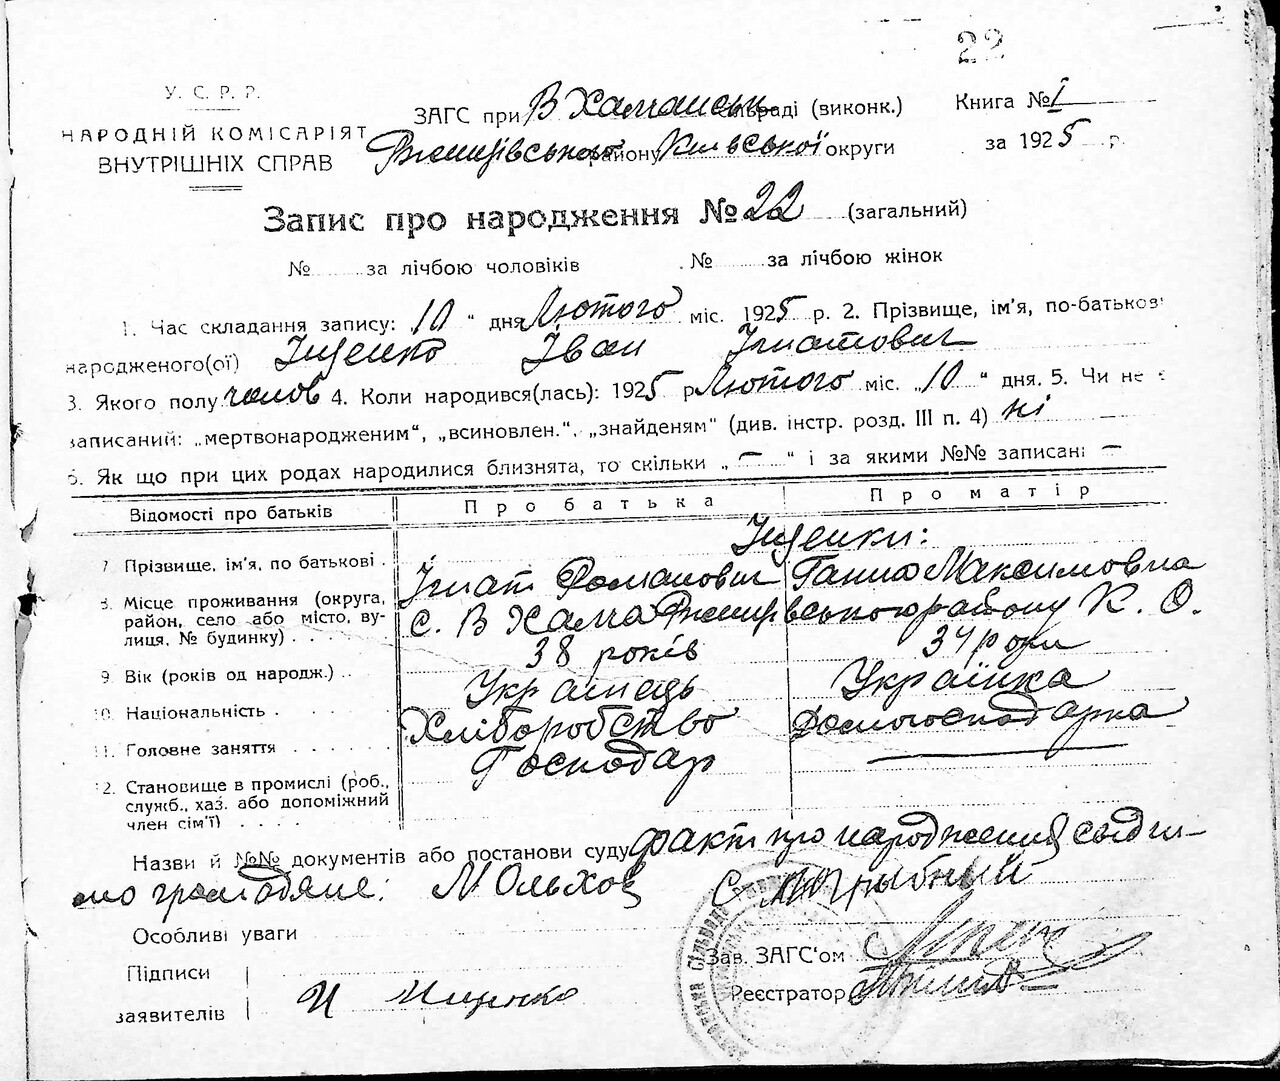 22
У. С. Р. Р.
НАРОДНІЙ КОМІСАРІЯТ
ВНУТРІШНІХ СПРАВ
ЗАГС при В Хаманськ сільраді (виконк.)
району Київської округи
Книга № І
за 1925 р.
Запис про народження № 22 (загальний)
№ за лічбою чоловіків № за лічбою жінок
1. Час складання запису: 10 " дня Лютого міс. 1925 р. 2. Прізвище, ім'я, по-батькові
народженого(ої) Іщенко Іван Ігнатович
3. Якого полу чолов 4. Коли народився(лась): 1925 р Лютого міс. „10" дня. 5. Чи не є
записаний: „мертвонародженим", „всиновлен.", „знайденям" (див. інстр. розд. III п. 4) ні
6. Як що при цих родах народилися близнята, то скільки „—" і за якими №№ записані —
Відомості про батьків Про батька Про матір
Іщенки:
7 Прізвище, ім'я, по батькові . Ігнат Романович Ганна Максимовна
8. Місце проживання (округа,
район, село або місто, ву-
лиця, № будинку) . . . . с. В Хама району К. О.
9. Вік (років од народж.) . . 38 років 34 роки
10. Національність . . . . . Українець Українка
11. Головне заняття . . . . . . Хліборобство Домогосподарка
12. Становище в промислі (роб., Господар —
служб., хаз. або допоміжний
член сім'ї) . . . .
Назви й №№ документів або постанови суду факт про народження свідчи-
мо громадяне: М Ольхов С
Особливі уваги
Зав. ЗАГС'ом
Підписи
заявителів И Ищенко
Реєстратор